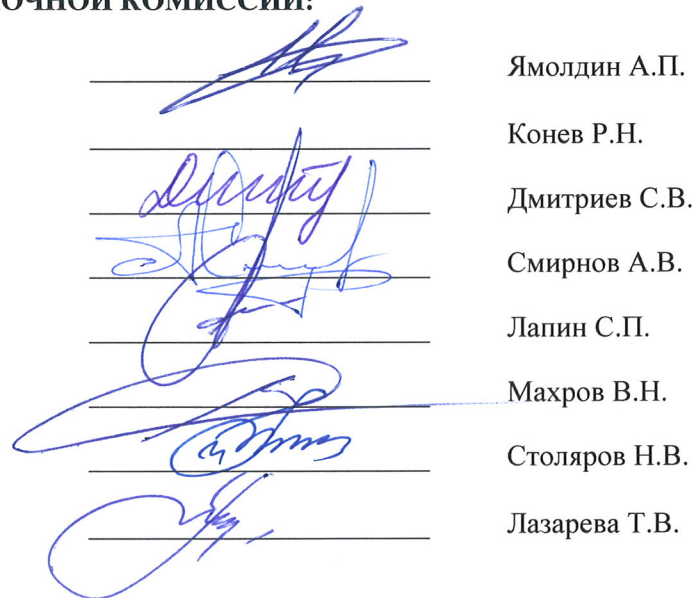 ОЧНОЙ КОМИССИИ:
Ямолдин А.П.
Конев Р.Н.
Дмитриев С.В.
Смирнов А.В.
Лапин С.П.
Махров В.Н.
Столяров Н.В.
Лазарева Т.В.